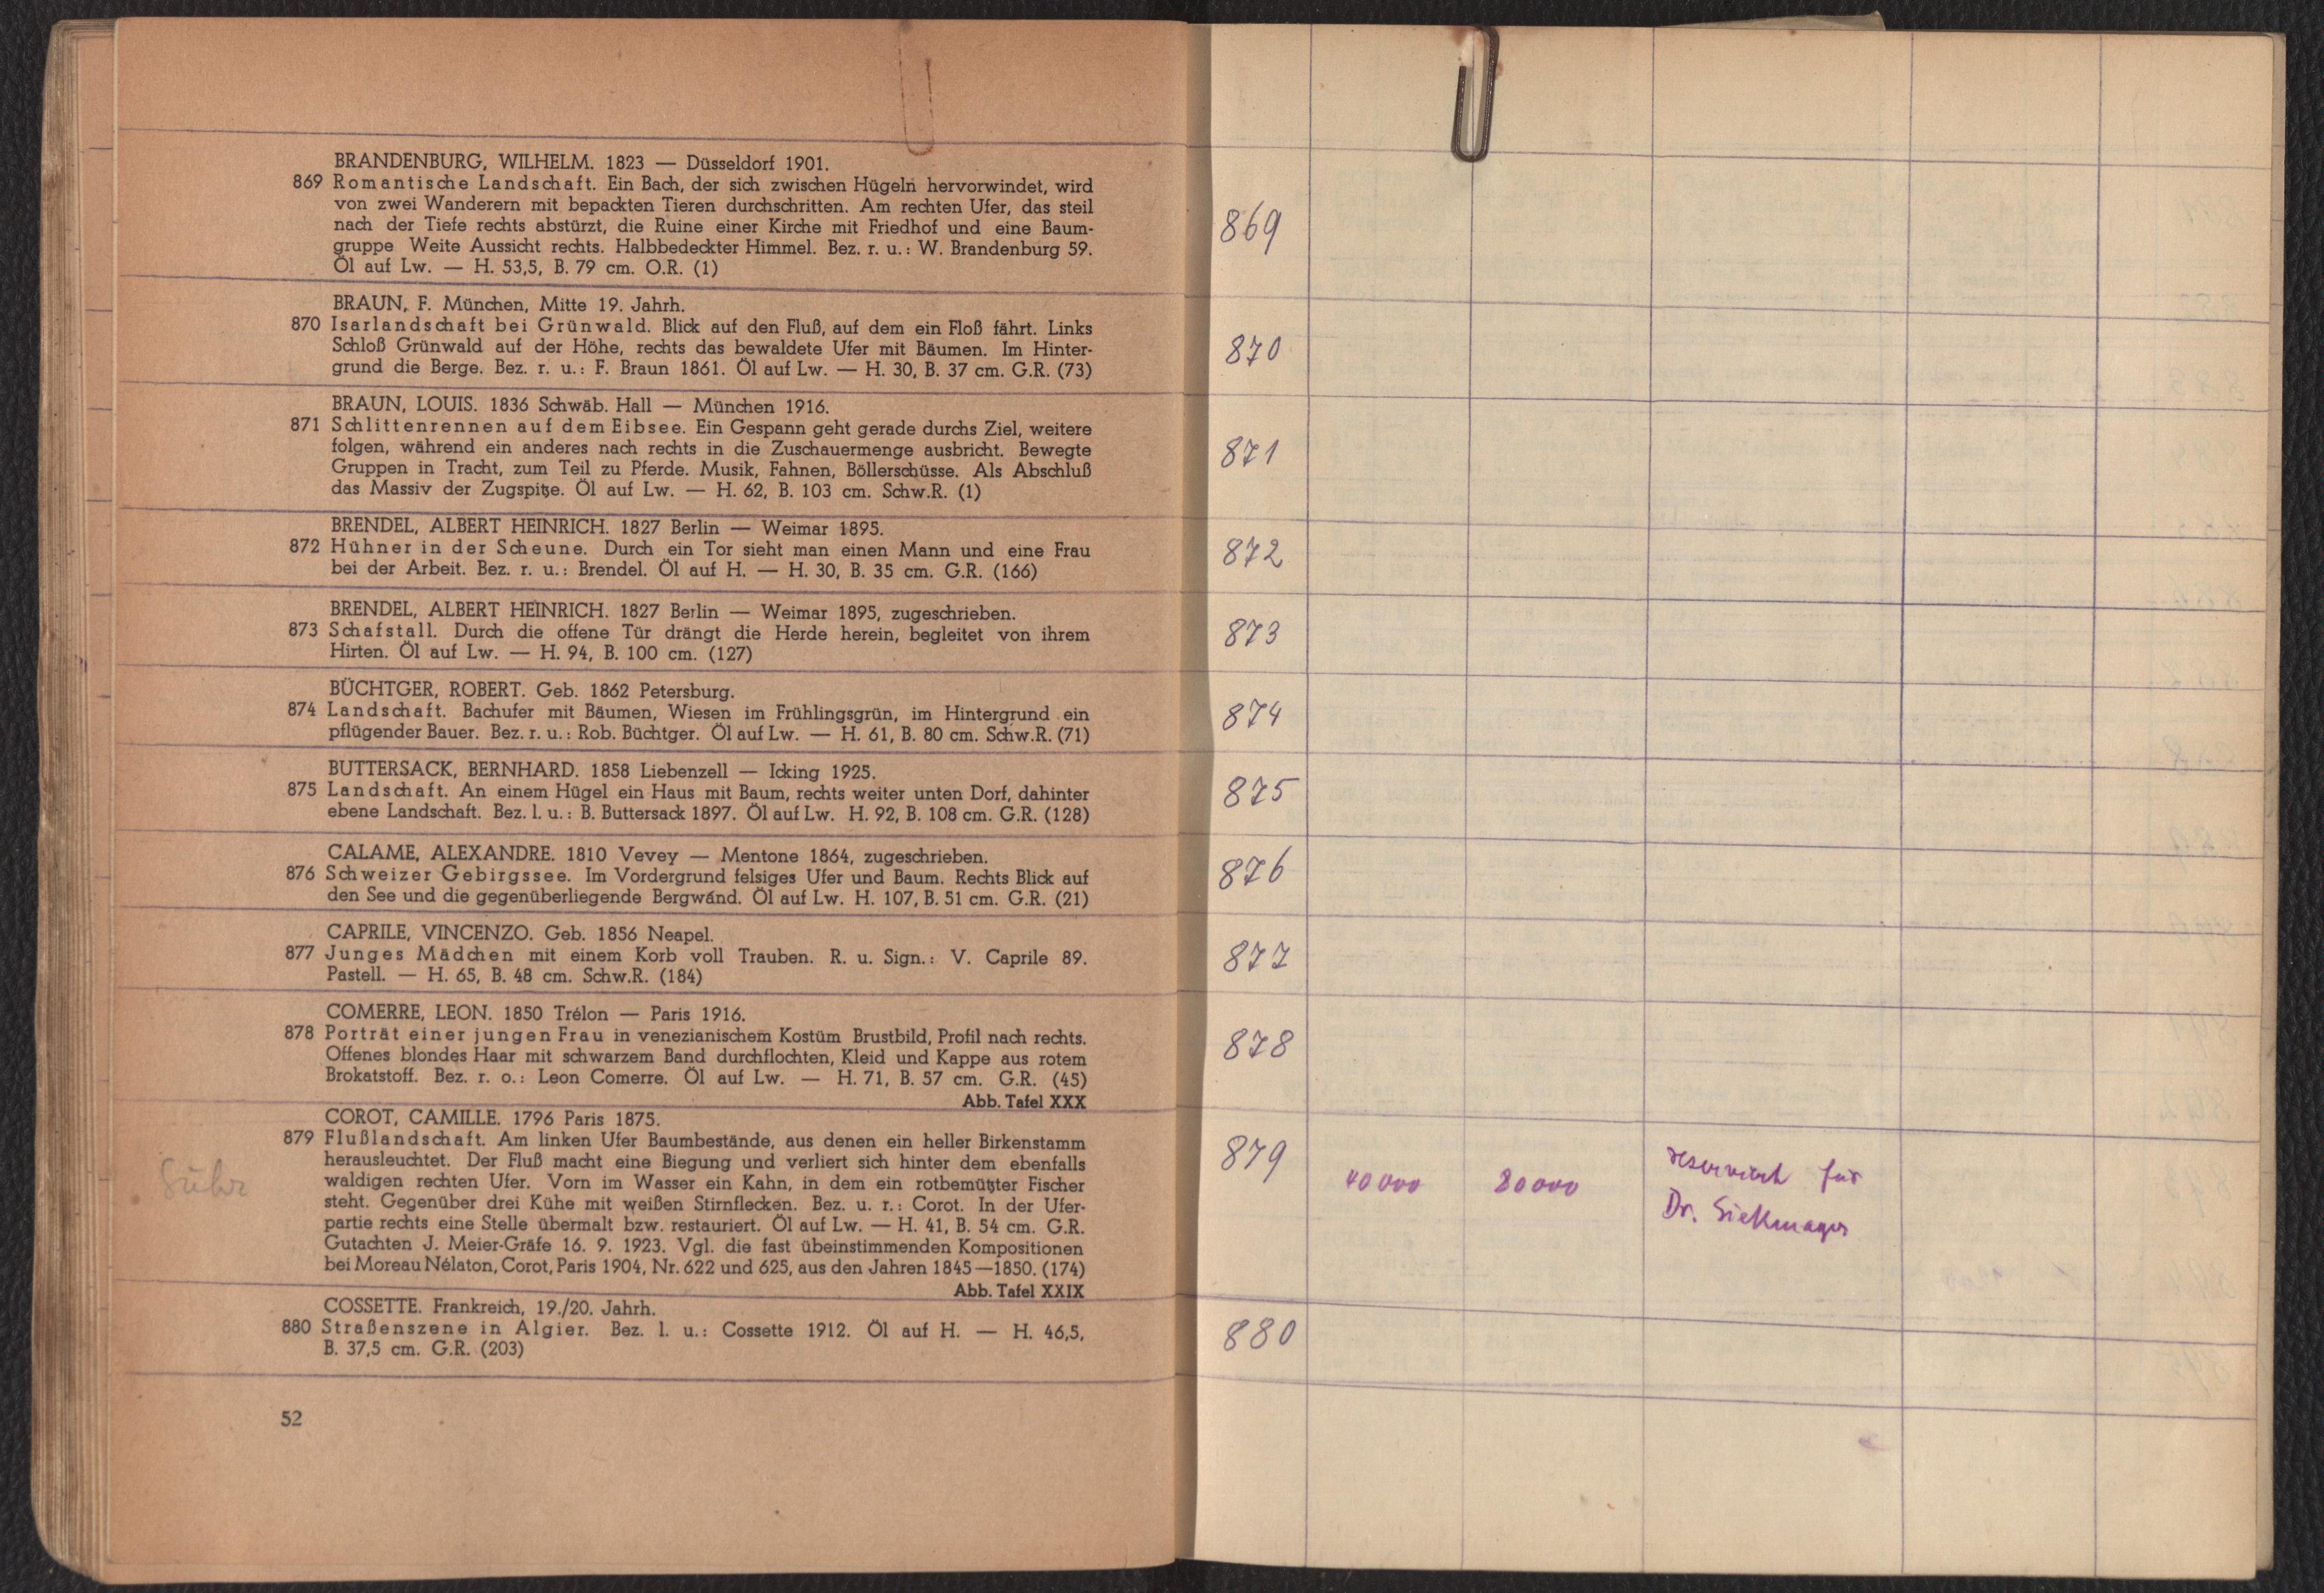 BRANDENBURG, WILHELM. 1823 — Düsseldorf 1901.
869 Romantische Landschaft. Ein Bach, der sich zwischen Hügeln hervorwindet, wird
von zwei Wanderern mit bepackten Tieren durchschritten. Am rechten Ufer, das steil
nach der Tiefe rechts abstürzt, die Ruine einer Kirche mit Friedhof und eine Baum-
gruppe Weite Aussicht rechts. Halbbedeckter Himmel. Bez. r. u.: W. Brandenburg 59.
Öl auf Lw. — H. 53,5, B. 79 cm. O.R. (1)
BRAUN, F. München, Mitte 19. Jahrh.
870 Isarlandschaft bei Grünwald. Blick auf den Fluß, auf dem ein Floß fährt. Links
Schloß Grünwald auf der Höhe, rechts das bewaldete Ufer mit Bäumen. Im Hinter-
grund die Berge. Bez. r. u.: F. Braun 1861. Öl auf Lw. — H. 30, B. 37 cm. G.R. (73)
BRAUN, LOUIS. 1836 Schwäb. Hall — München 1916.
871 Schlittenrennen auf dem Eibsee. Ein Gespann geht gerade durchs Ziel, weitere
folgen, während ein anderes nach rechts in die Zuschauermenge ausbricht. Bewegte
Gruppen in Tracht, zum Teil zu Pferde. Musik, Fahnen, Böllerschüsse. Als Abschluß
das Massiv der Zugspitze. Öl auf Lw. — H. 62, B. 103 cm. Schw.R. (1)
BRENDEL, ALBERT HEINRICH. 1827 Berlin — Weimar 1895.
872 Hühner in der Scheune. Durch ein Tor sieht man einen Mann und eine Frau
bei der Arbeit. Bez. r. u.: Brendel. Öl auf H. — H. 30, B. 35 cm. G.R. (166)
BRENDEL, ALBERT HEINRICH. 1827 Berlin — Weimar 1895, zugeschrieben.
873 Schafstall. Durch die offene Tür drängt die Herde herein, begleitet von ihrem
Hirten. Öl auf Lw. — H. 94, B. 100 cm. (127)
BÜCHTGER, ROBERT. Geb. 1862 Petersburg.
874 Landschaft. Bachufer mit Bäumen, Wiesen im Frühlingsgrün, im Hintergrund ein
pflügender Bauer. Bez. r. u.: Rob. Büchtger. Öl auf Lw. — H. 61, B. 80 cm. Schw.R. (71)
BUTTERSACK, BERNHARD. 1858 Liebenzell — Icking 1925.
875 Landschaft. An einem Hügel ein Haus mit Baum, rechts weiter unten Dorf, dahinter
ebene Landschaft. Bez. l. u.: B. Buttersack 1897. Öl auf Lw. H. 92, B. 108 cm. G.R. (128)
CALAME, ALEXANDRE. 1810 Vevey — Mentone 1864, zugeschrieben.
876 Schweizer Gebirgssee. Im Vordergrund felsiges Ufer und Baum. Rechts Blick auf
den See und die gegenüberliegende Bergwánd. Öl auf Lw. H. 107, B. 51 cm. G.R. (21)
CAPRILE, VINCENZO. Geb. 1856 Neapel.
877 Junges Mädchen mit einem Korb voll Trauben. R. u. Sign.: V. Caprile 89.
Pastell. — H. 65, B. 48 cm. Schw.R. (184)
COMERRE, LEON. 1850 Trélon — Paris 1916.
878 Porträt einer jungen Frau in venezianischem Kostüm Brustbild, Profil nach rechts.
Offenes blondes Haar mit schwarzem Band durchflochten, Kleid und Kappe aus rotem
Brokatstoff. Bez. r. o.: Leon Comerre. Öl auf Lw. — H. 71, B. 57 cm. G.R. (45)
Abb. Tafel XXX
COROT, CAMILLE. 1796 Paris 1875.
879 Flußlandschaft. Am linken Ufer Baumbestände, aus denen ein heller Birkenstamm
herausleuchtet. Der Fluß macht eine Biegung und verliert sich hinter dem ebenfalls
waldigen rechten Ufer. Vorn im Wasser ein Kahn, in dem ein rotbemützter Fischer
steht. Gegenüber drei Kühe mit weißen Stirnflecken. Bez. u. r.: Corot. In der Ufer-
partie rechts eine Stelle übermalt bzw. restauriert. Öl auf Lw. — H. 41, B. 54 cm. G.R.
Gutachten J. Meier-Gräfe 16. 9. 1923. Vgl. die fast übeinstimmenden Kompositionen
bei Moreau Nélaton, Corot, Paris 1904, Nr. 622 und 625, aus den Jahren 1845—1850. (174)
Abb. Tafel XXIX
COSSETTE. Frankreich, 19./20. Jahrh.
880 Straßenszene in Algier. Bez. l. u.: Cossette 1912. Öl auf H. — H. 46,5,
B. 37,5 cm. G.R. (203)
52
869
870
871
872
873
874
875
876
877
878
879 40000 80000 reserviert für
Dr. Siekmayer
880